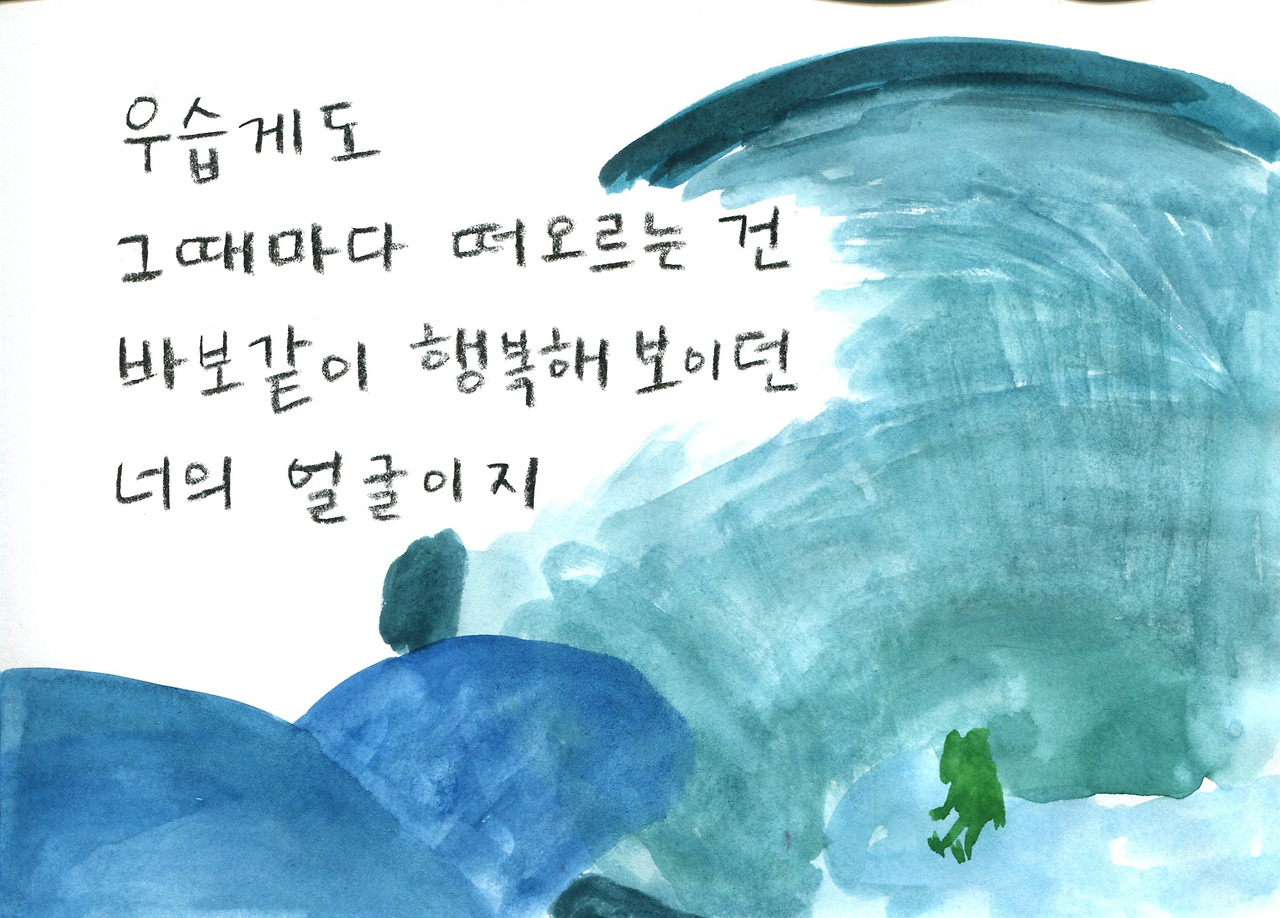 우습게도
그때마다 떠오르는 건
바보같이 행복해 보이던
너의 얼굴이지